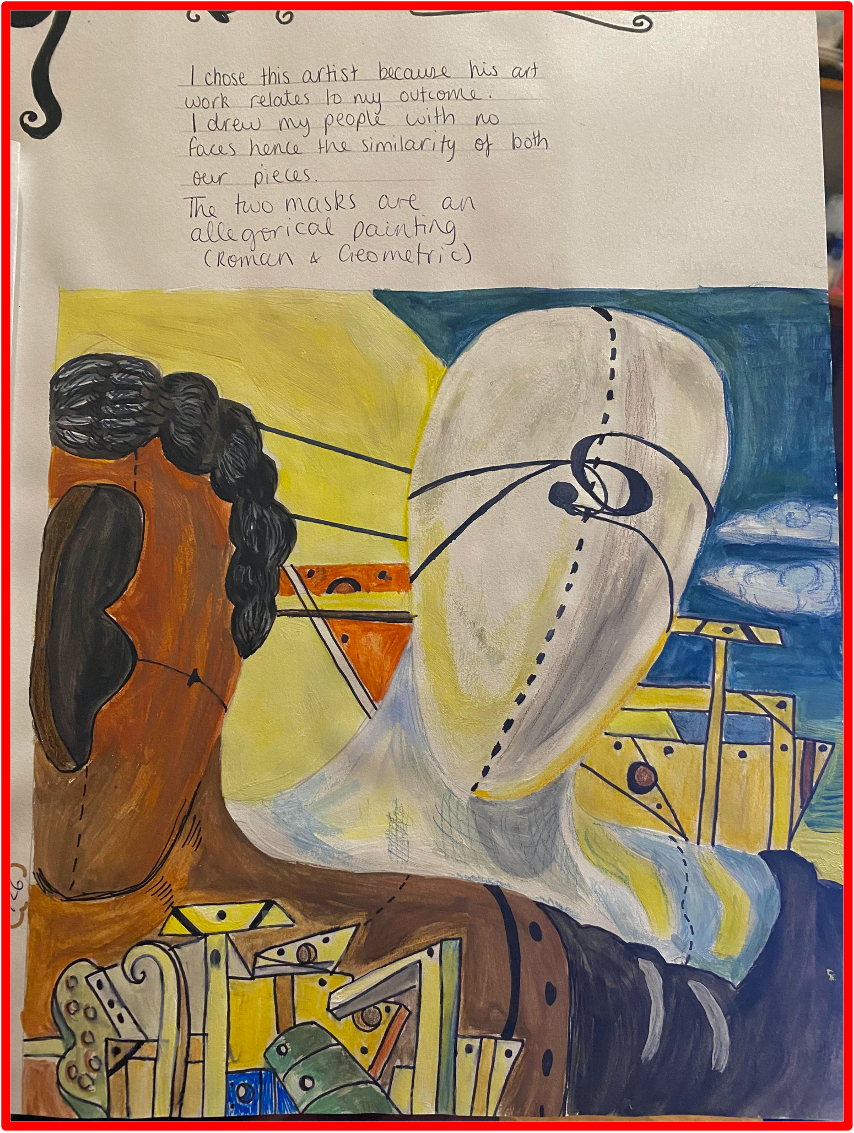 I chose this artist because his art
work relates to my outcome.
I drew my people with no
faces hence the similarity of both
our pieces.
The two masks are an
allegorical painting
(Roman & Geometric)